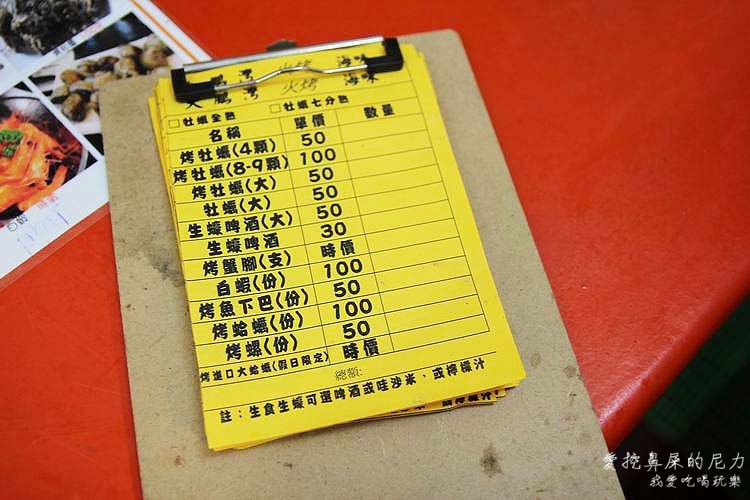 大鵬灣 火烤 海味
□牡蠣全熟 □牡蠣七分熟
名稱 單價 數量
烤牡蠣(4顆) 50
烤牡蠣(8-9顆) 100
烤牡蠣(大) 50
牡蠣(大) 50
生蠔啤酒(大) 50
生蠔啤酒 30
烤蟹腳(支) 時價
白蝦(份) 100
烤魚下巴(份) 50
烤蛤蠣(份) 100
烤螺(份) 50
烤進口大蛤蠣(假日限定) 時價
總額:
註：生食生蠔可選啤酒或哇沙米、或檸檬汁
愛挖鼻屎的尼力
我愛吃喝玩樂